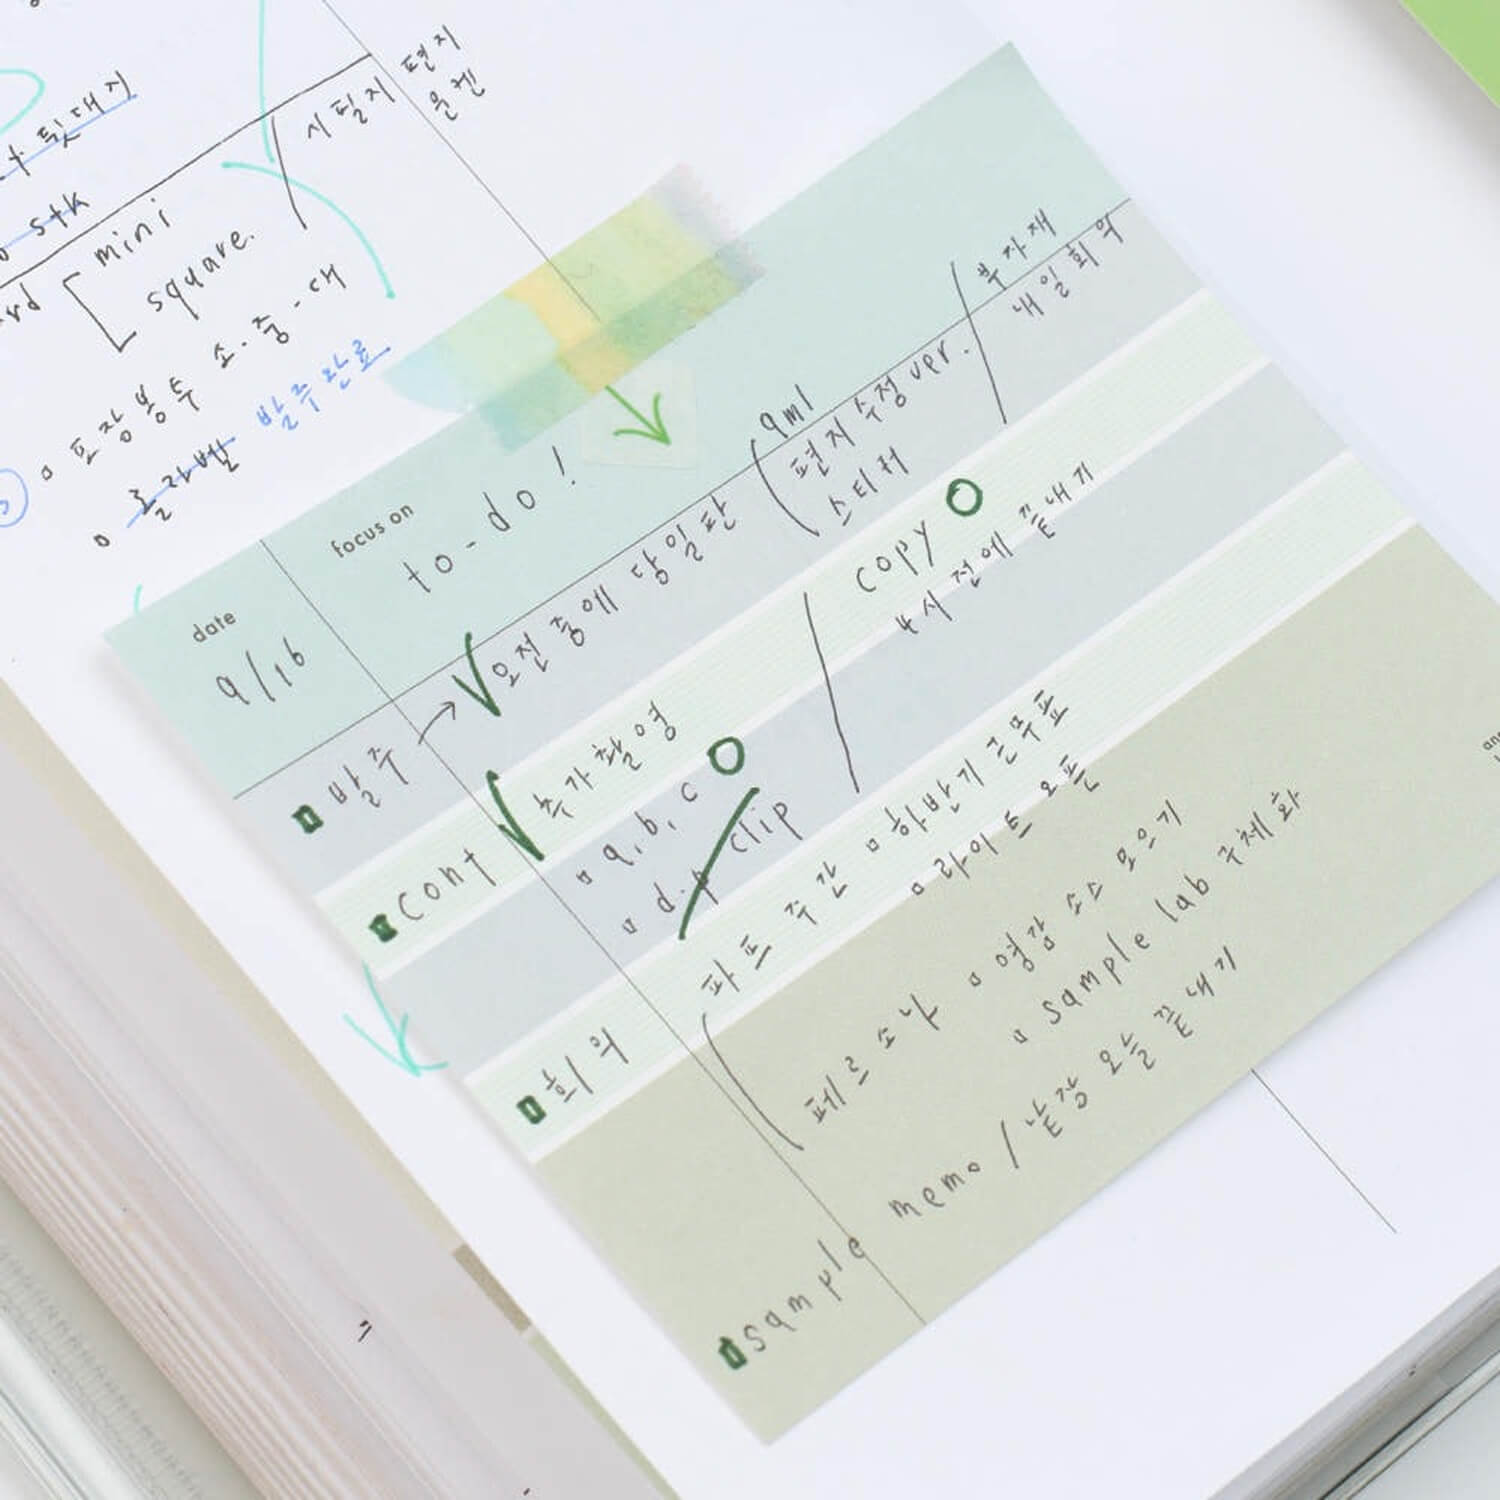 시필지
편지
윤켄
뒷대지
stk
mini
square.
포장봉투 소·중·대
롤라벨 발주완료
date
9/16
focus on
to-do!
발주 → 오전 중에 당일판
9ml
편지 수정 ver.
스티커
부자재
내일 회의
cont
추가촬영
a, b, c
d.p clip
copy
4시 전에 끝내기
회의
파프 주간
하반기 근무표
라이트 오픈
페르소나
영감 소스 모으기
sample lab 구체화
sample memo / 낱장 오늘 끝내기